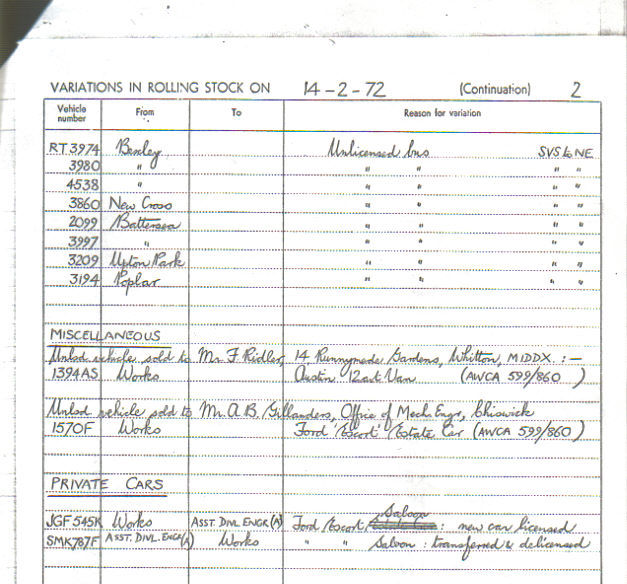 VARIATIONS IN ROLLING STOCK ON 14-2-72 (Continuation) 2
Vehicle number From To Reason for variation
RT 3974 Bexley Unlicensed bus SVS to NE
3980 " " " " "
4538 " " " " "
3860 New Cross " " " "
2099 Battersea " " " "
3997 " " " " "
3209 Upton Park " " " "
3194 Poplar " " " "
MISCELLANEOUS
Unlsd vehicle sold to Mr. F Ridler, 14 Runnymede Gardens, Whitton, MIDDX. :—
1394AS Works Austin 12cwt Van (AWCA 599/860 )
Unlsd vehicle sold to Mr. A.B. Gillanders, Office of Mech. Engr, Chiswick
1570F Works Ford 'Escort' Estate Car (AWCA 599/860 )
PRIVATE CARS
Saloon
JGF 545K Works ASST. DIVL. ENGR(A) Ford Escort : new car licensed
SMK787F ASST. DIVL. ENGR(A) Works " " Saloon : transferred & delicensed